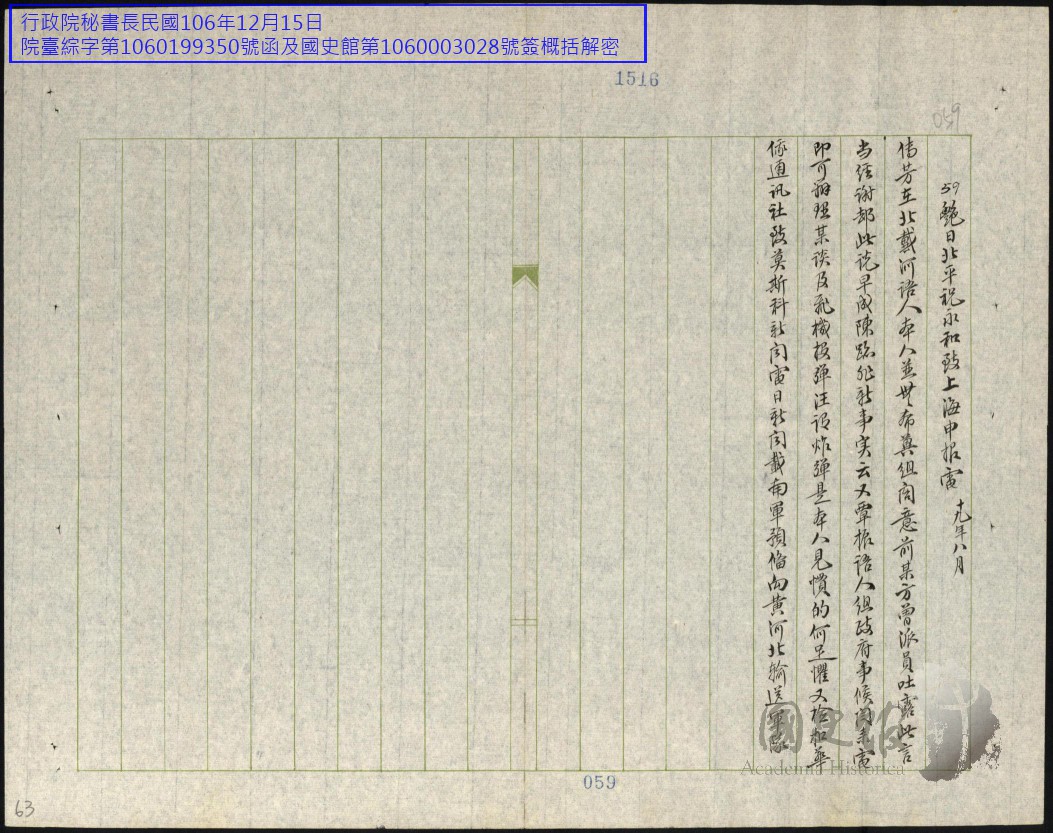 行政院秘書長民國106年12月15日
院臺綜字第1060199350號函及國史館第1060003028號簽概括解密
1516
059
59艷日北平祝永和致上海申报電 十九年八月
傳芳在北戴河語人本人並無希冀組閣意前某方曾派員吐露此言
当經谢却此说早成陳跡非新事实云又覃振語人組政府事候閻来電
即可辦理某谈及飛機投弹汪谓炸弹是本人見慣的何足懼又檢扣華
俄通讯社致莫斯科新闻電日新闻载南軍預備向黄河北輸送軍隊
國史館
Academia Historica
059
63